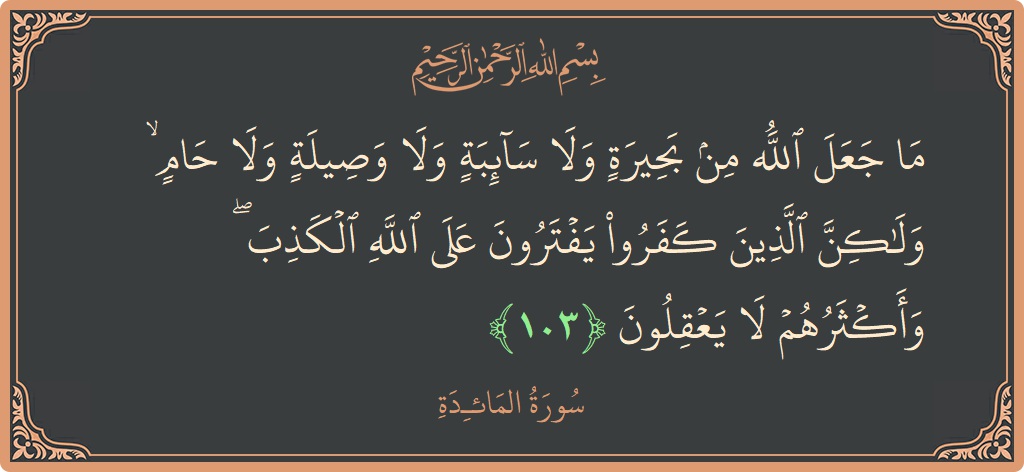 بِسْمِ اللَّهِ الرَّحْمَٰنِ الرَّحِيمِ
مَا جَعَلَ ٱللَّهُ مِنۢ بَحِيرَةٍ وَلَا سَآئِبَةٍ وَلَا وَصِيلَةٍ وَلَا حَامٍ ۙ
وَلَٰكِنَّ ٱلَّذِينَ كَفَرُوا۟ يَفْتَرُونَ عَلَى ٱللَّهِ ٱلْكَذِبَ ۖ
وَأَكْثَرُهُمْ لَا يَعْقِلُونَ ﴿١٠٣﴾
سُورَةُ المَائـِدَةِ